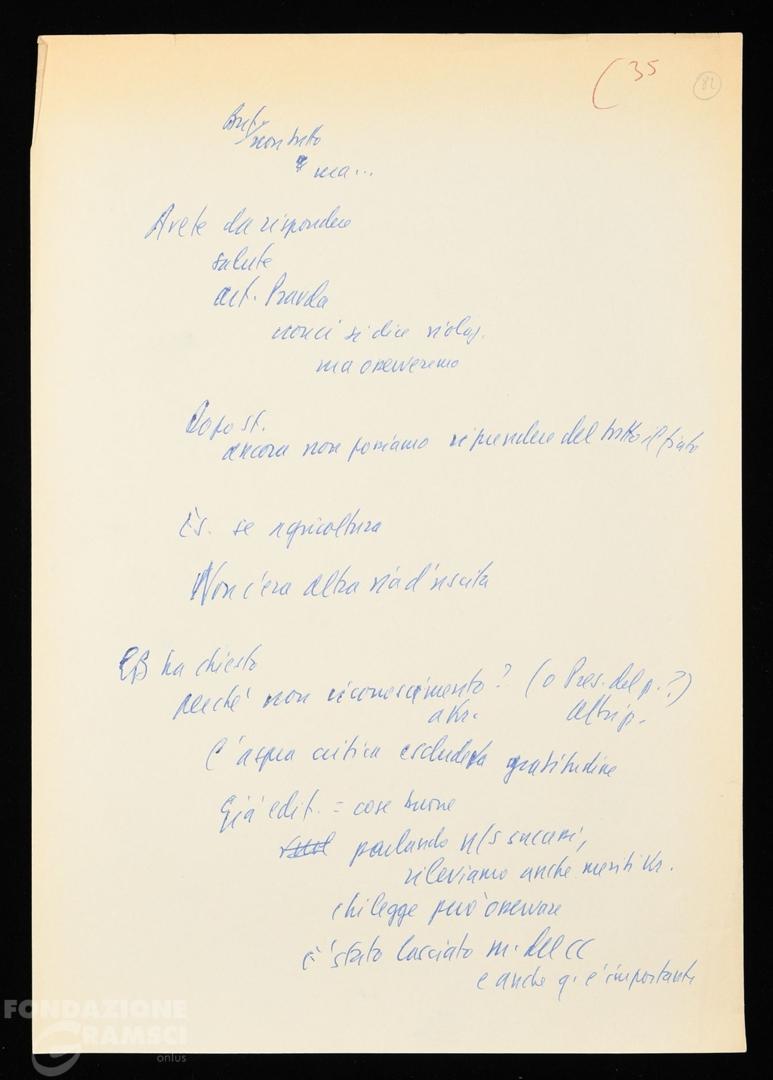 (35
82
non tutto
ma...
Avete da rispondere
salute
art. Pravda
non ci si dice violaz.
ma osserveremo
Dopo st.
ancora non possiamo riprendere del tutto il fiato
Es. se agricoltura
Non c'era altra via d'uscita
EB ha chiesto
perché non riconoscimento? (o Pres. del p.?)
a Kr. altri p.
L'aspra critica escludeva gratitudine
Già edit. = cose buone
parlando n/s successi,
rileviamo anche meriti Kr.
chi legge può osservare
è stato lasciato m. del CC
e anche q. è importante
FONDAZIONE
GRAMSCI
onlus